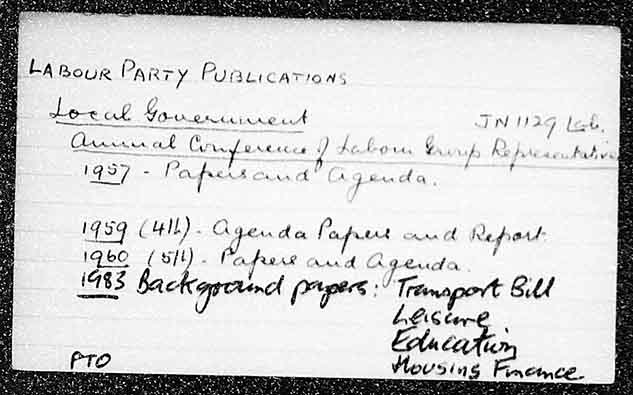 LABOUR PARTY PUBLICATIONS
Local Government JN 1129 Lab.
Annual Conference of Labour Group Representatives
1957 - Papers and Agenda.
1959 (4th) - Agenda Papers and Report.
1960 (5th) - Papers and Agenda.
1983 Background papers: Transport Bill
Leisure
Education
Housing Finance.
PTO